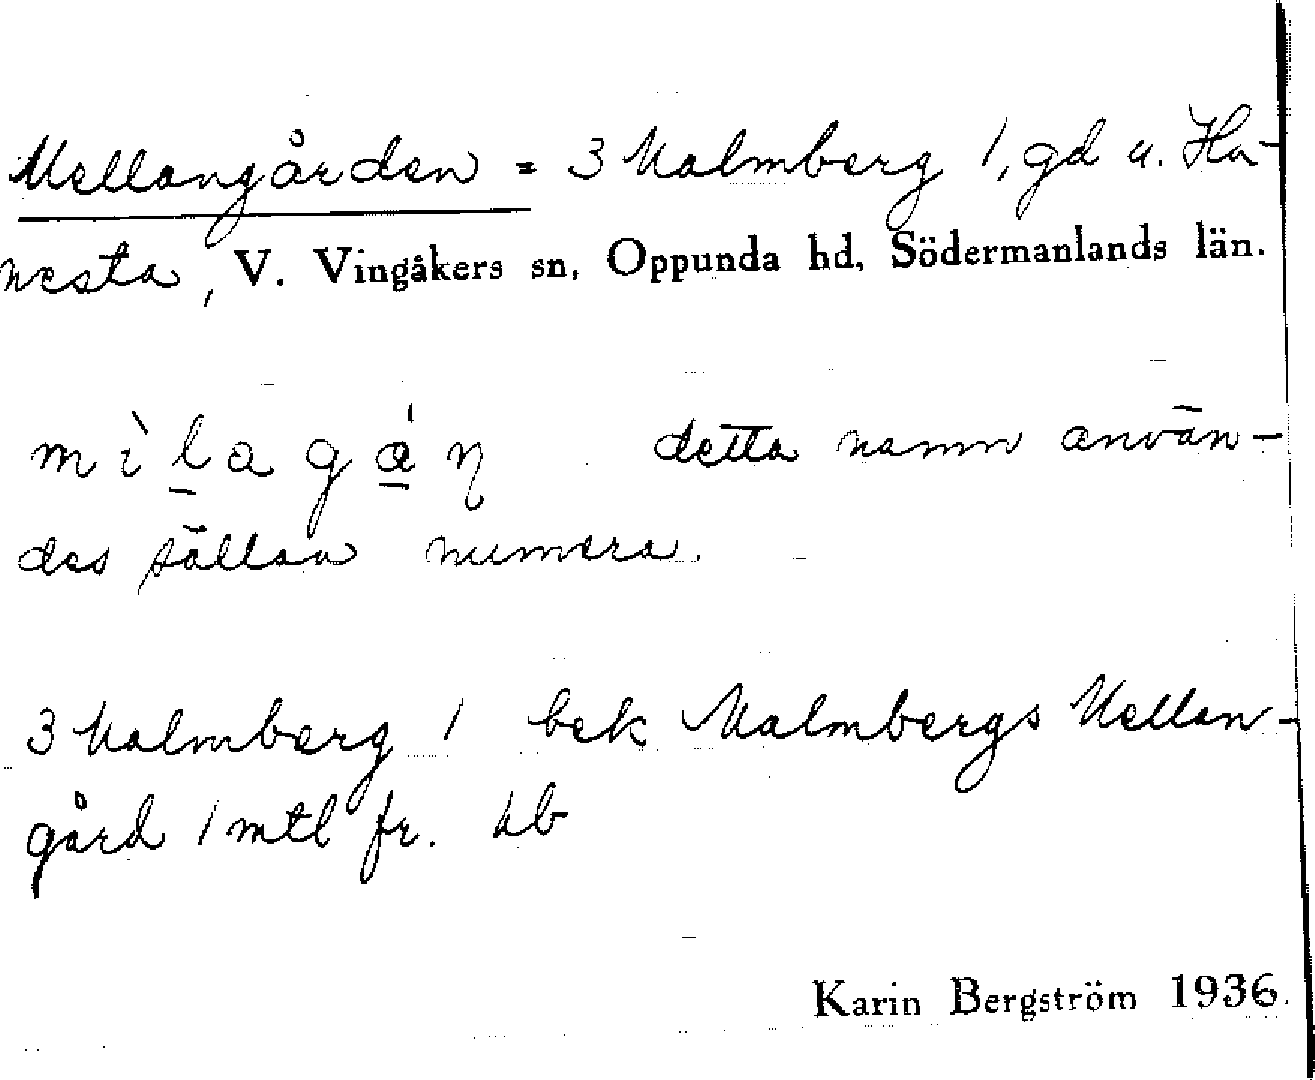 Mellangården = 3 Malmberg 1, gd u. Ha-
nesta, V. Vingåkers sn, Oppunda hd, Södermanlands län.
mìlagán detta namn använ-
des sällan numera.
3 Malmberg 1 bek Malmbergs Mellan-
gård 1 mtl fr. hb
Karin Bergström 1936.